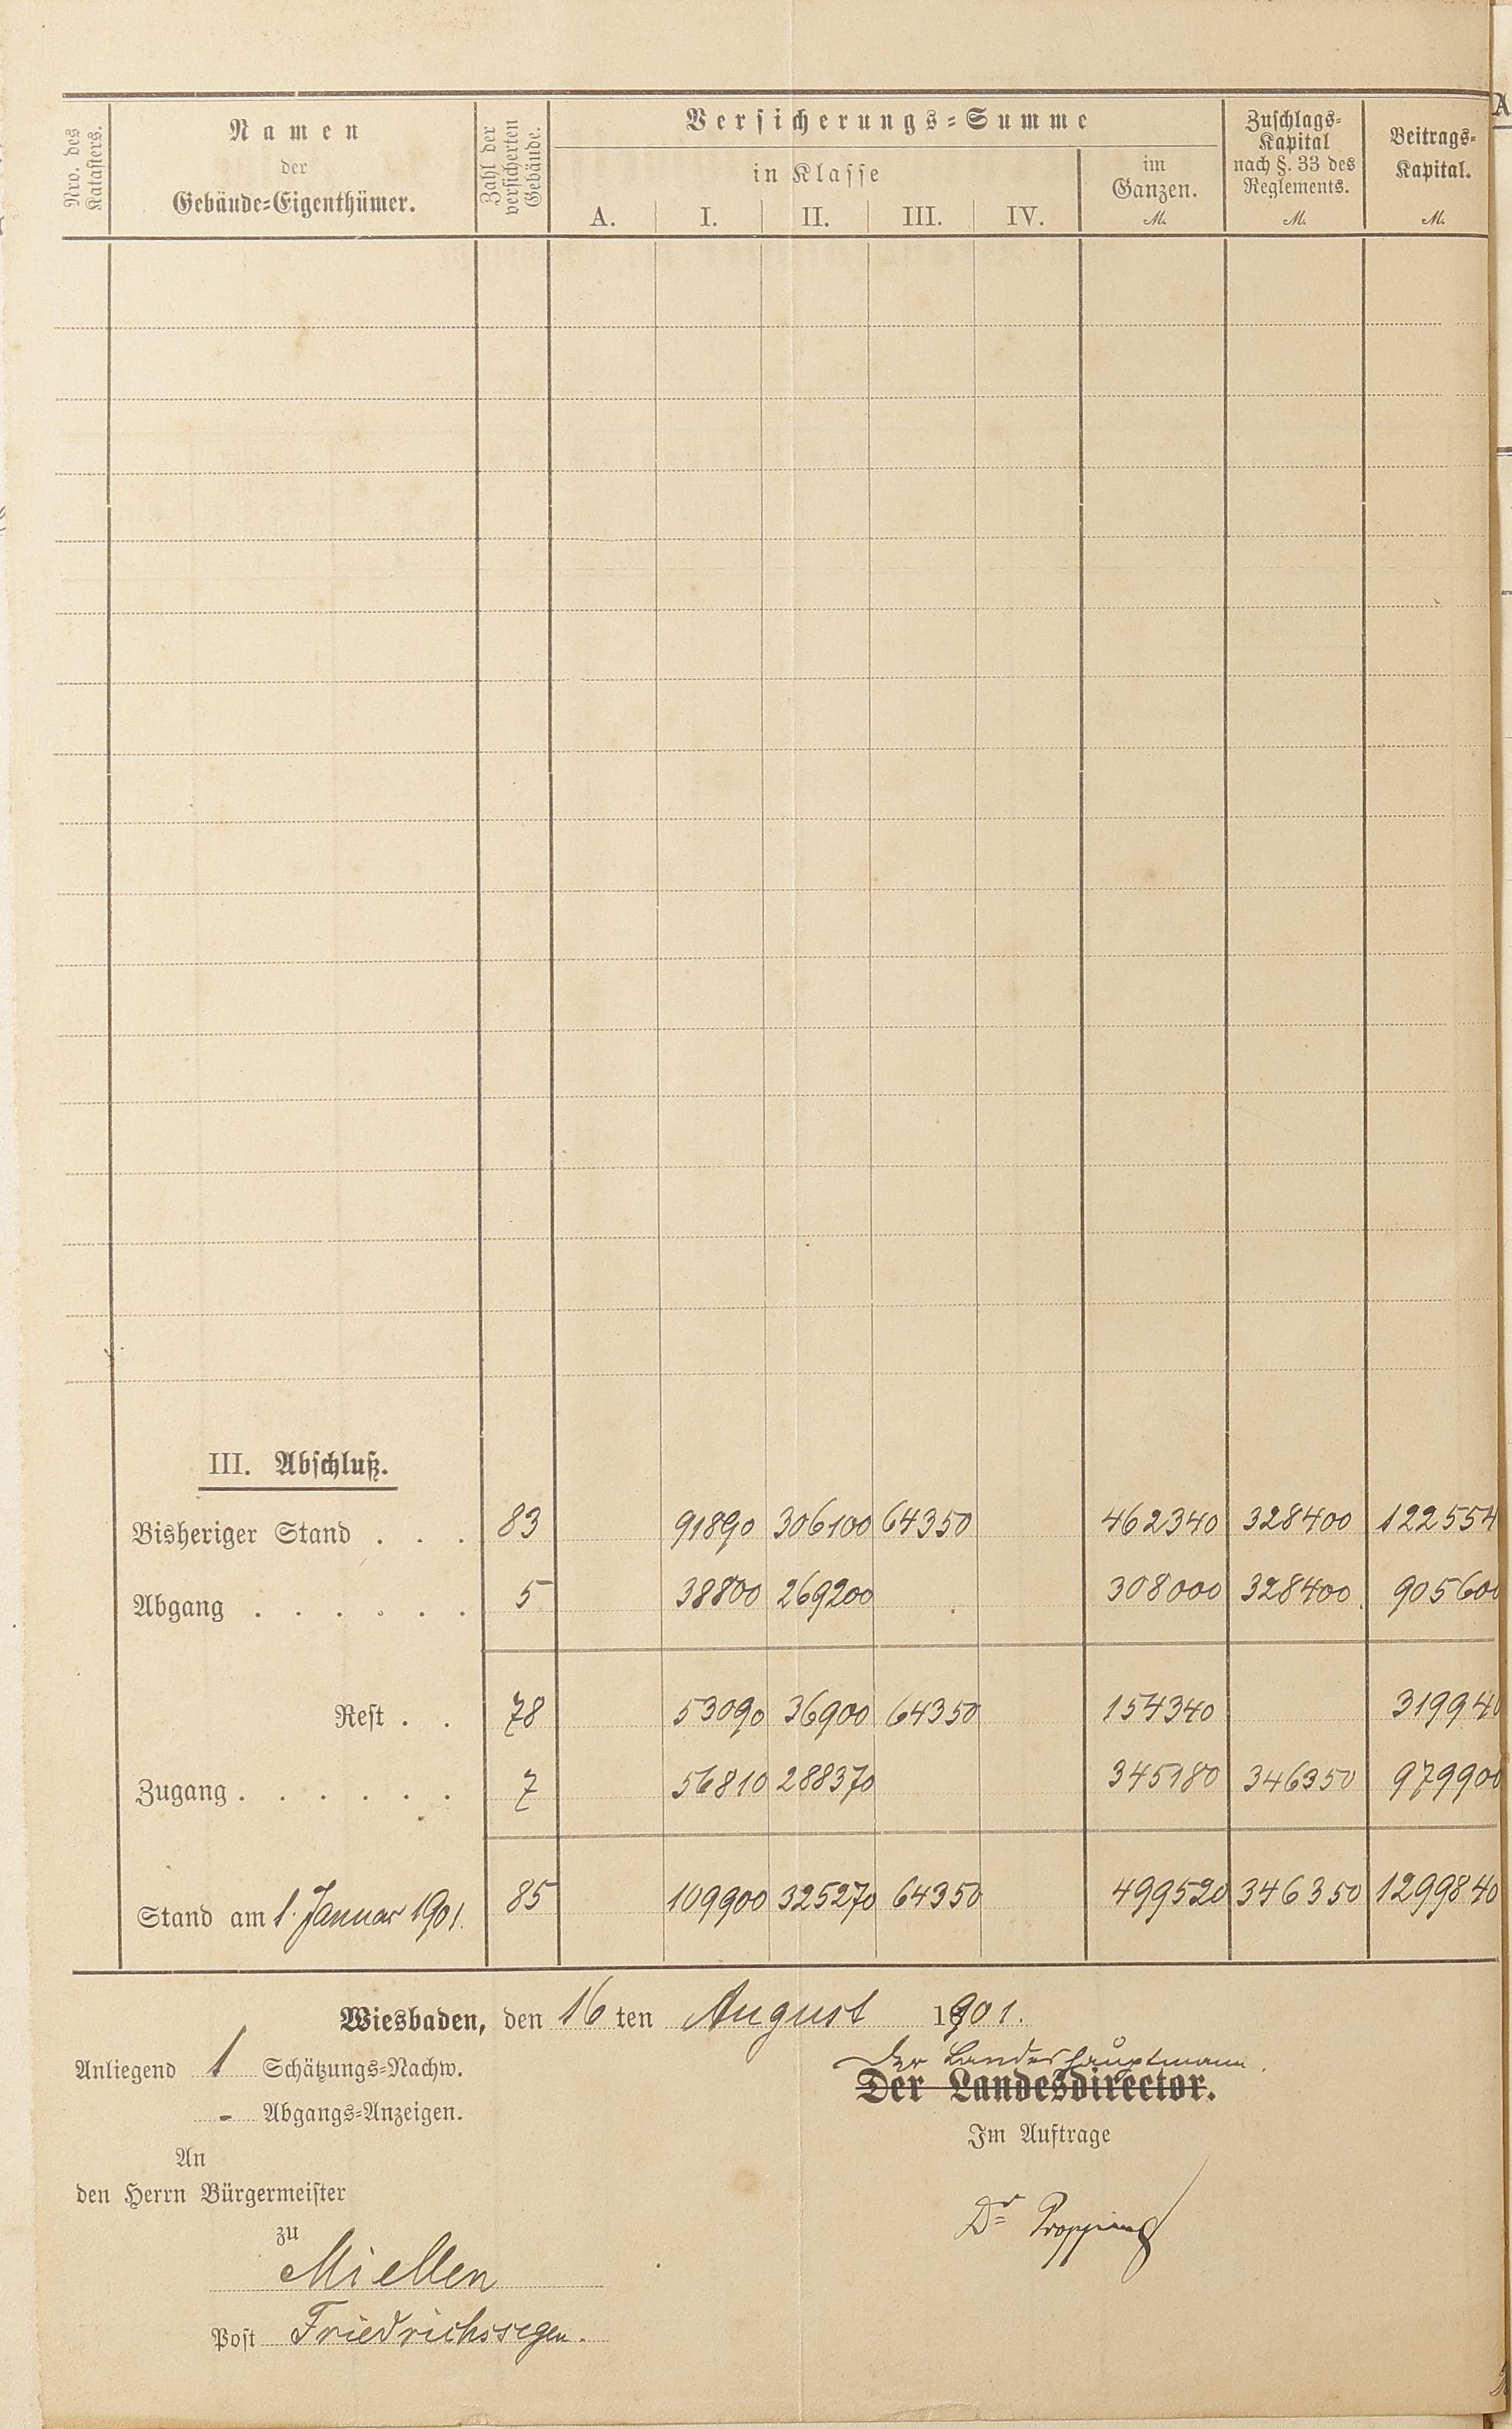 Nro. des Katasters.
Namen
der
Gebäude=Eigenthümer.
Zahl der versicherten Gebäude.
Versicherungs=Summe
in Klasse
A. I. II. III. IV.
im
Ganzen.
M.
Zuschlags=
Kapital
nach §. 33 des
Reglements.
M.
Beitrags=
Kapital.
M.
III. Abschluß.
Bisheriger Stand . . . 83 91890 306100 64350 462340 328400 122554
Abgang . . . . . . 5 38800 269200 308000 328400 905600
Rest . . 78 53090 36900 64350 154340 319940
Zugang . . . . . . 7 56810 288370 345180 346350 979900
Stand am 1. Januar 1901. 85 109900 325270 64350 499520 346350 1299840
Wiesbaden, den 16 ten August 1901.
Anliegend 1 Schätzungs=Nachw.
Der Landeshauptmann.
Der Landesdirector.
- Abgangs=Anzeigen.
Im Auftrage
An
den Herrn Bürgermeister
zu
Dr
Miellen
Post Friedrichssegen.